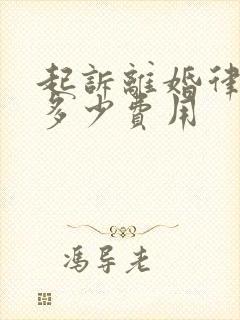 起訴離婚律
多少費用
馮导老